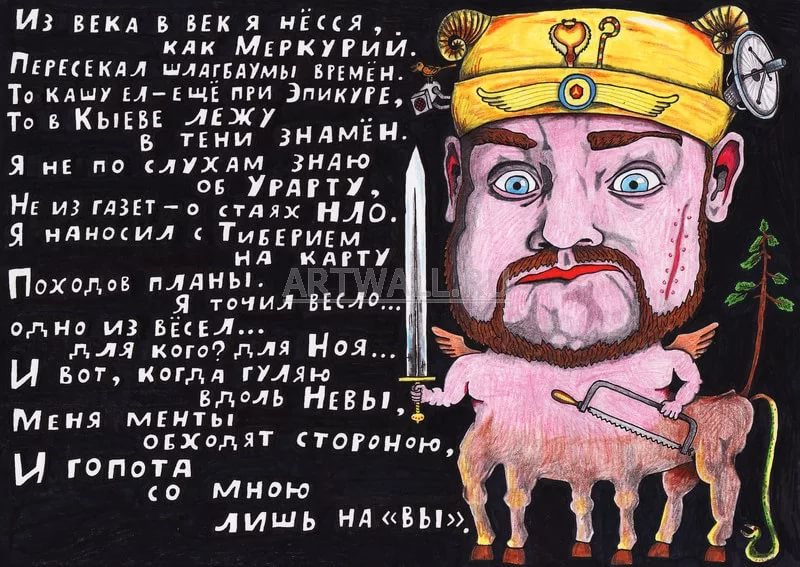 Из века в век я нёсся,
как Меркурий.
Пересекал шлагбаумы времён.
То кашу ел – ещё при Эпикуре,
То в Кыеве лежу
в тени знамён.
Я не по слухам знаю
об Урарту,
Не из газет – о стаях НЛО.
Я наносил с Тиберием
на карту
Походов планы.
Я точил весло...
одно из вёсел...
для кого? для Ноя...
И вот, когда гуляю
вдоль Невы,
Меня менты
обходят стороною,
И гопота
со мною
лишь на «вы».
ARTWALL.RU